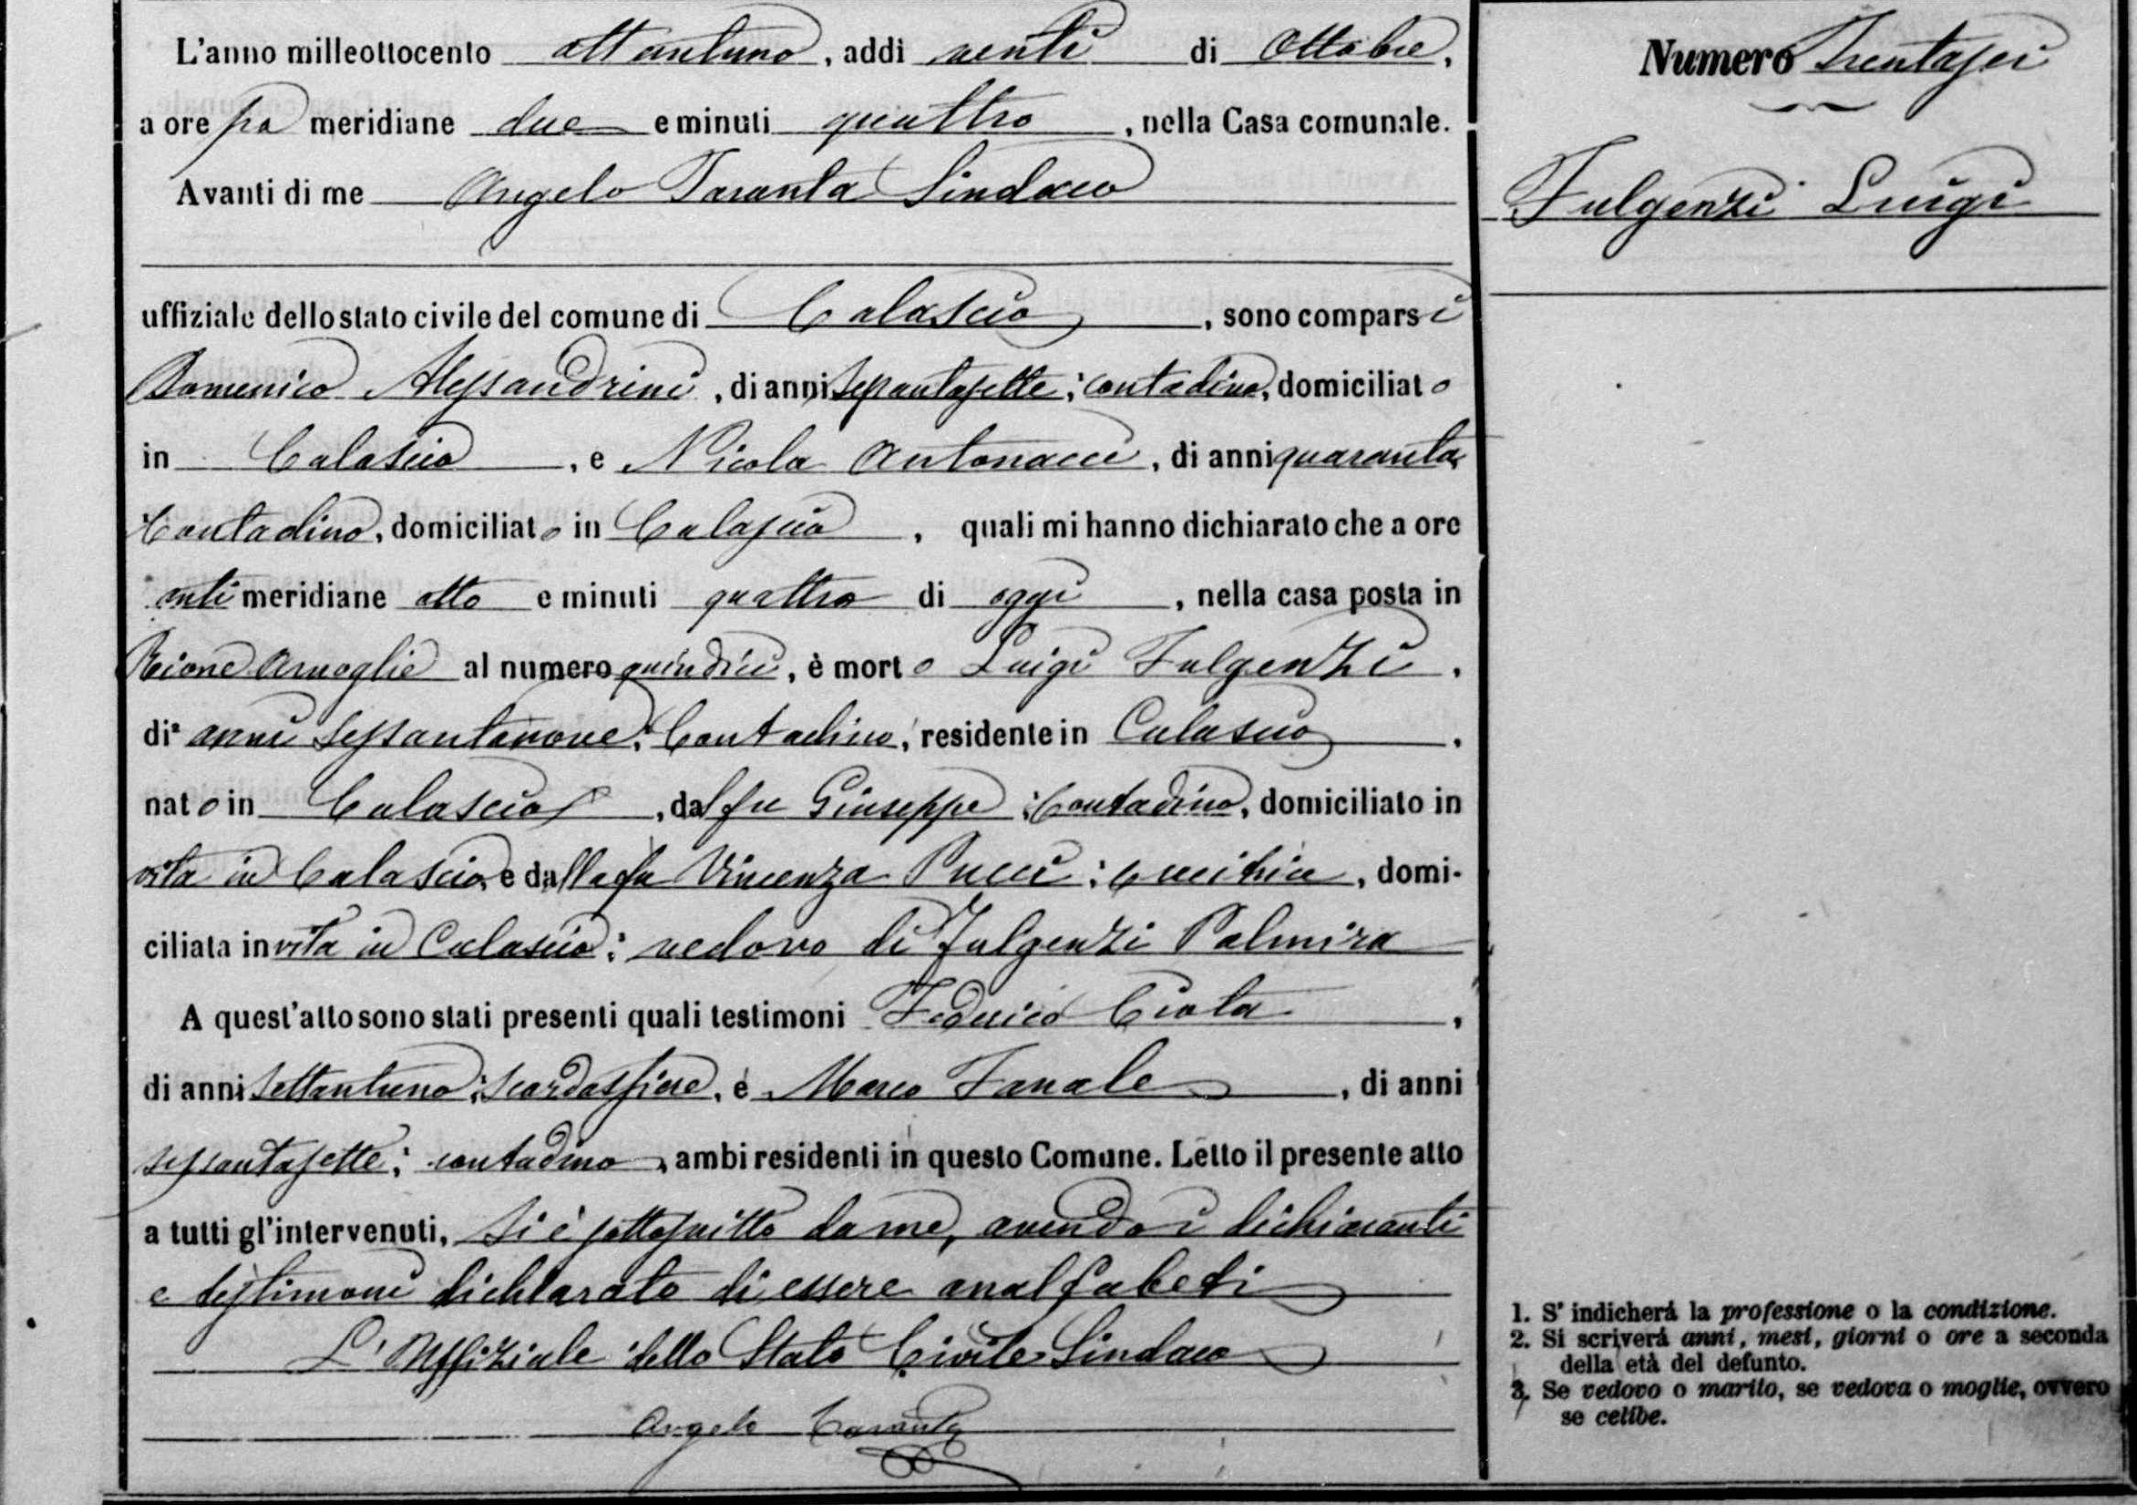 L'anno milleottocento ottantuno, addì venti di Ottobre,
a ore po meridiane due e minuti quattro, nella Casa comunale.
Avanti di me Angelo Taranta Sindaco
uffiziale dello stato civile del comune di Calascio, sono comparsi
Domenico Alessandrini, di anni sessantasette; contadino, domiciliato
in Calascio, e Nicola Antonacci, di anni quaranta,
Contadino, domiciliato in Calascio, quali mi hanno dichiarato che a ore
anti meridiane otto e minuti quattro di oggi, nella casa posta in
Rione al numero quindici, è morto Luigi Fulgenzi,
di² anni sessantanove; Contadino, residente in Calascio,
nato in Calascio, dal fu Giuseppe; Contadino, domiciliato in
vita in Calascio e dalla fu Vincenza Pucci; cucitrice, domi-
ciliata in vita in Calascio; vedovo di Fulgenzi Palmira
A quest'atto sono stati presenti quali testimoni Federico Ciota,
di anni settantuno; scardassiere, e Marco Fanale, di anni
sessantasette; contadino, ambi residenti in questo Comune. Letto il presente atto
a tutti gl'intervenuti, si è sottoscritto da me, avendo i dichiaranti
e testimoni dichiarato di essere analfabeti
L'Uffiziale dello Stato Civile Sindaco
Angelo Taranta
Numero Trentasei
Fulgenzi Luigi
1. S' indicherá la professione o la condizione.
2. Si scriverá anni, mesi, giorni o ore a seconda
della età del defunto.
3. Se vedovo o marito, se vedova o moglie, ovvero
se celibe.